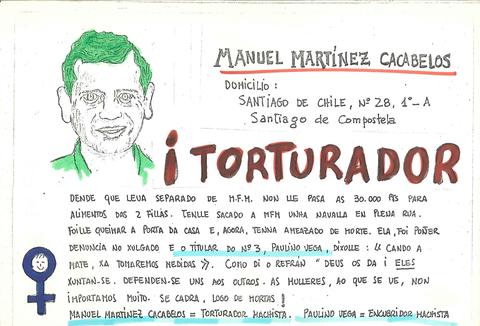 MANUEL MARTÍNEZ CACABELOS
DOMICILIO :
SANTIAGO DE CHILE, Nº 28, 1º-A
Santiago de Compostela
¡ TORTURADOR
DENDE QUE LEVA SEPARADO DE M.F.M. NON LLE PASA AS 30.000 PTS PARA
ALIMENTOS DAS 2 FILLAS. TENLLE SACADO A MFM UNHA NAVALLA EN PLENA RUA.
FOILLE QUEIMAR A PORTA DA CASA E, AGORA, TENNA AMEAZADO DE MORTE. ELA, FOI POÑER
DENUNCIA NO XULGADO E O TITULAR DO Nº 3, PAULINO VEGA, DIXOLLE : « CANDO A
MATE, XA TOMAREMOS MEDIDAS ». COMO DI O REFRÁN " DEUS OS DA I ELES
XUNTAN-SE. DEFENDEN-SE UNS AOS OUTROS. AS MULLERES, AO QUE SE VE, NON
IMPORTAMOS MUITO. SE CADRA, LOGO DE MORTAS !
MANUEL MARTÍNEZ CACABELOS = TORTURADOR MACHISTA. PAULINO VEGA = ENCUBRIDOR MACHISTA